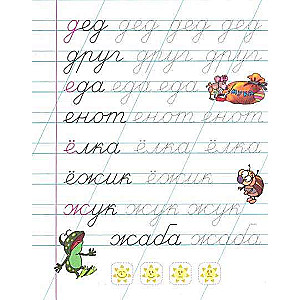 дед дед дед дед
друг друг друг
еда еда еда
мука
енот енот енот
ёлка ёлка ёлка
ёжик ёжик
жук жук жук
жаба жаба